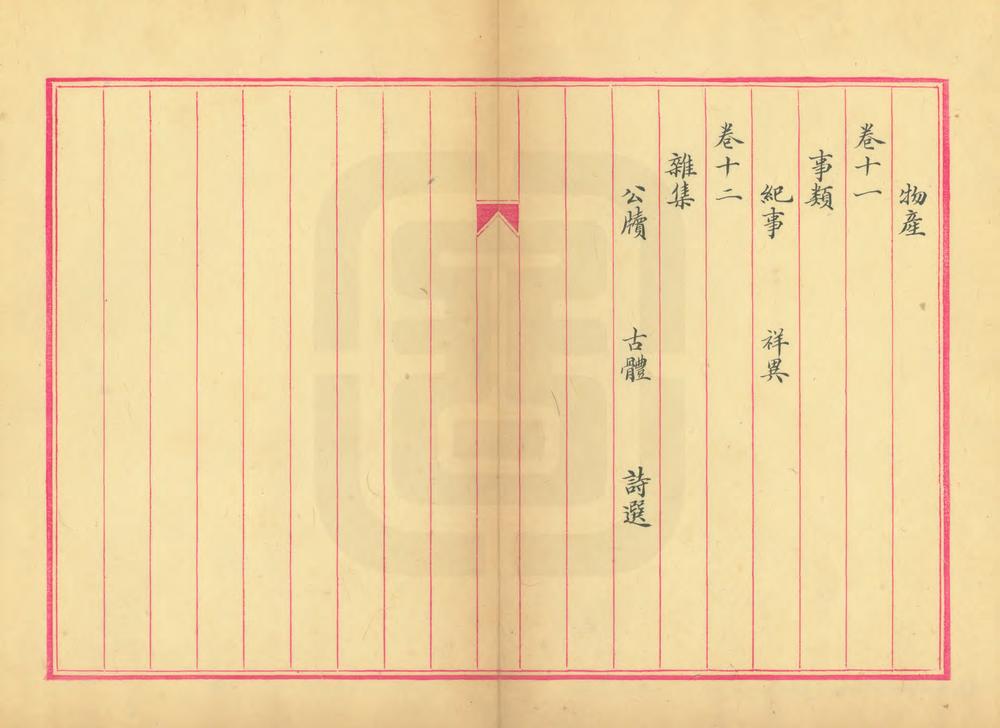 物產
卷十一
事類
紀事　祥異
卷十二
雜集
公牘　古體　詩選